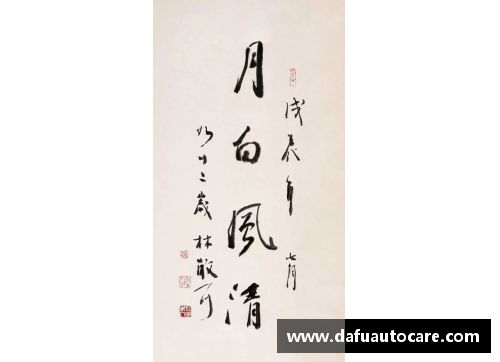 戊辰年 七月
月白風清
九十二歲 林散耳
www.dafuautocare.com